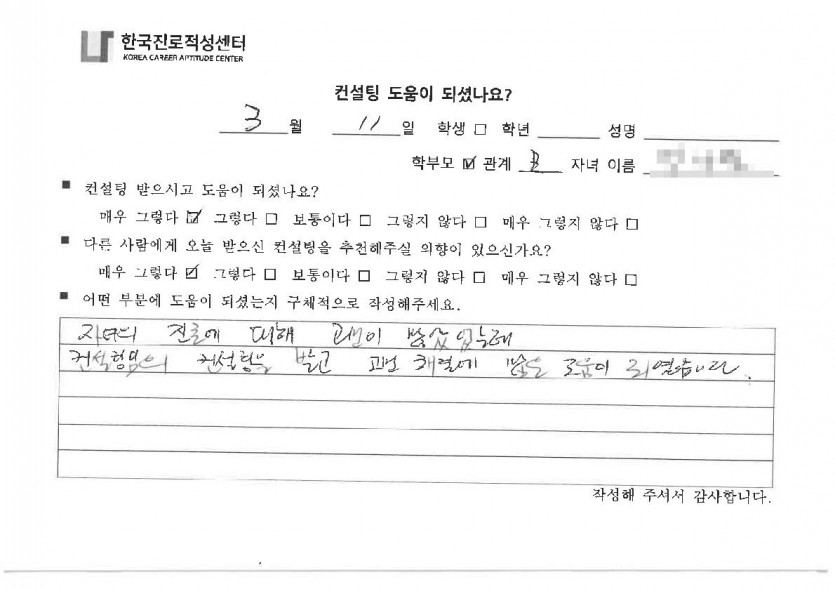 한국진로적성센터
KOREA CAREER APTITUDE CENTER
컨설팅 도움이 되셨나요?
3 월 11 일 학생 □ 학년 성명
학부모 ☑ 관계 자녀 이름
■ 컨설팅 받으시고 도움이 되셨나요?
매우 그렇다 ☑ 그렇다 □ 보통이다 □ 그렇지 않다 □ 매우 그렇지 않다 □
■ 다른 사람에게 오늘 받으신 컨설팅을 추천해주실 의향이 있으신가요?
매우 그렇다 ☑ 그렇다 □ 보통이다 □ 그렇지 않다 □ 매우 그렇지 않다 □
■ 어떤 부분에 도움이 되셨는지 구체적으로 작성해주세요.
자녀의 진로에 대해 고민이 많았었는데
컨설팅을 받고 고민 해결에 많은 도움이 되었습니다.
작성해 주셔서 감사합니다.